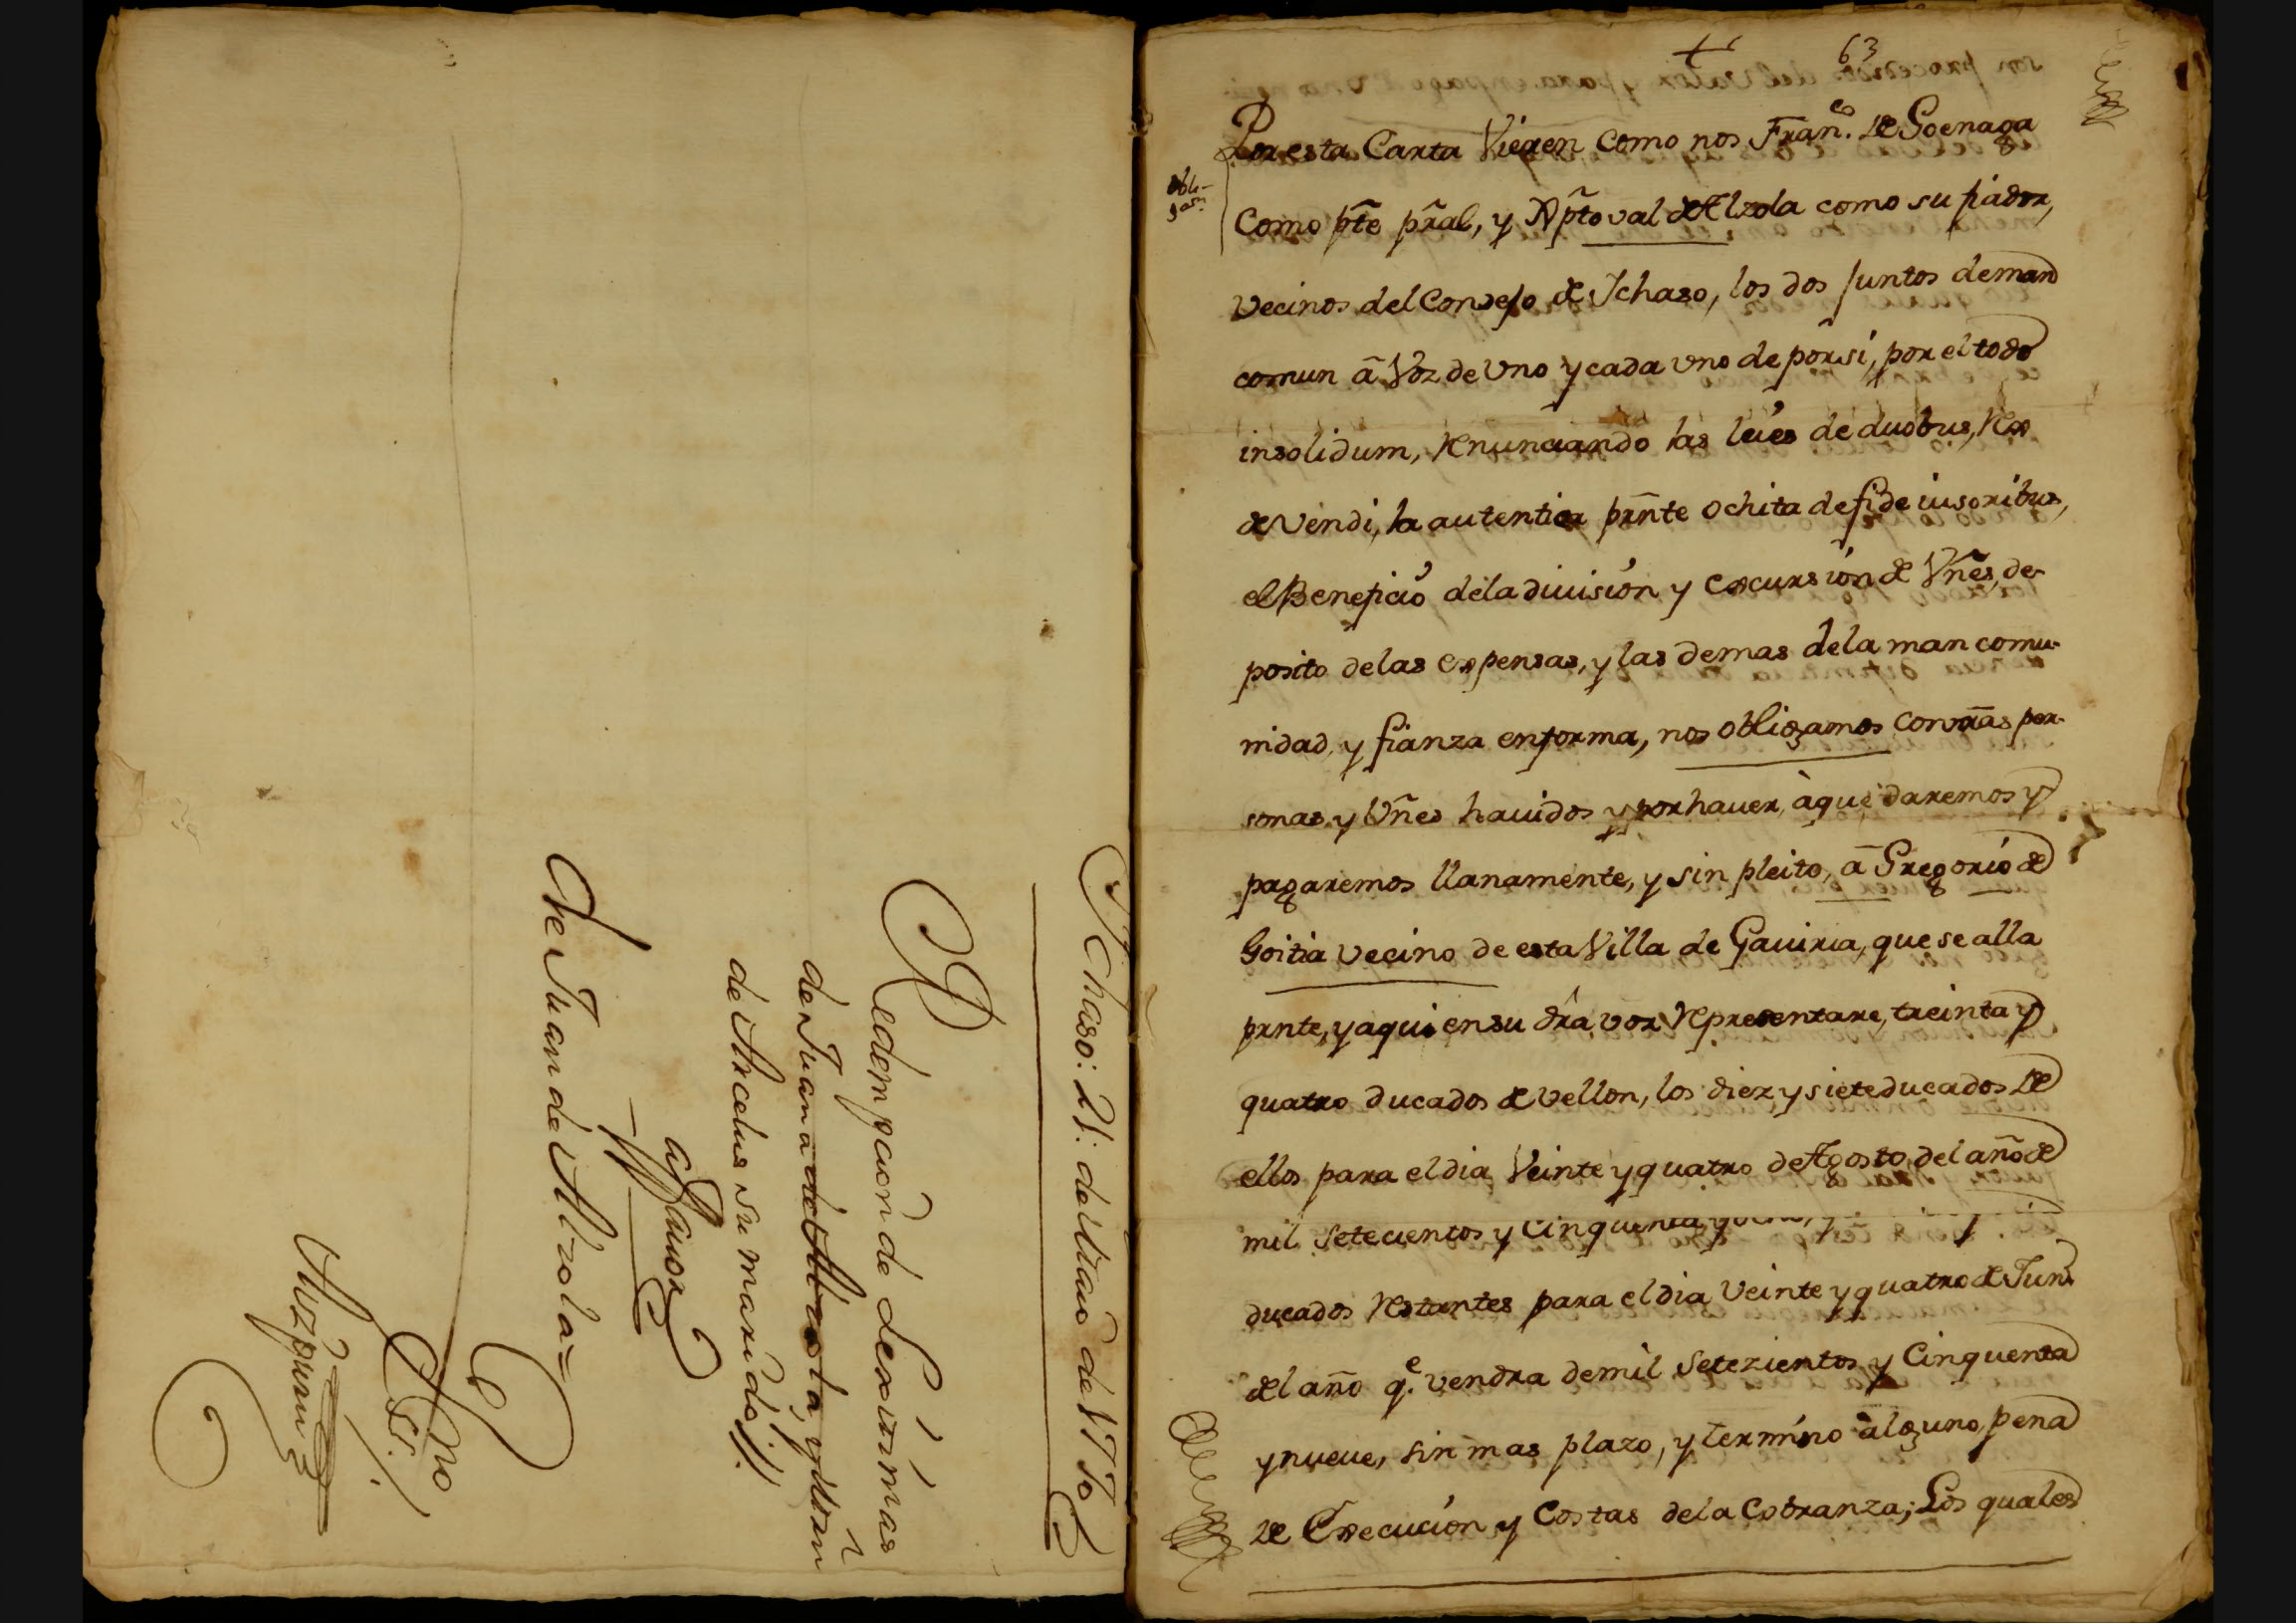 Ychaso: 21: de Março de 1770
Redempcion de Lexitimas
de Juana de Alzola, y Mrn
de Arcelus su marido //.
afavor
De Juan de Alzola =
Sno
Azpuru
+
63
Obli-
gaon.
Por esta Carta Vieren como nos Franco. de Goenaga
Como pte pral, y Xptoval de Alzola como su fiador,
vecinos del Consejo de Ichaso, los dos juntos deman
comun â Voz de Uno y cada uno de porsi, por el todo
insolidum, renunciando las leies de duobus, Rex
de vendi, la autentica prnte ochita de fide iusoribus,
el Beneficio dela diuision y excursion de Vnes, de-
posito delas expensas, y las demas dela man comu-
nidad, y fianza enforma, nos obligamos con nras per-
sonas y Vnes hauidos y porhauer, àque daremos y
pagaremos llanamente, y sin pleito, â Gregorio de
Goitia vecino de esta Villa de Gauiria, que se alla
prnte, y aqui en su dra, voz representare, treinta y
quatro ducados de vellon, los diez y siete ducados de
ellos para el dia Veinte y quatro de Agosto, del año de
mil setecientos y Cinquenta y
ducados restantes para el dia Veinte y quatro de Jun.
del año qe. vendra demil Setezientos y Cinquenta
y nueue, sin mas plazo, y termino alguno, pena
de Execucion y Costas dela Cobranza; Los quales